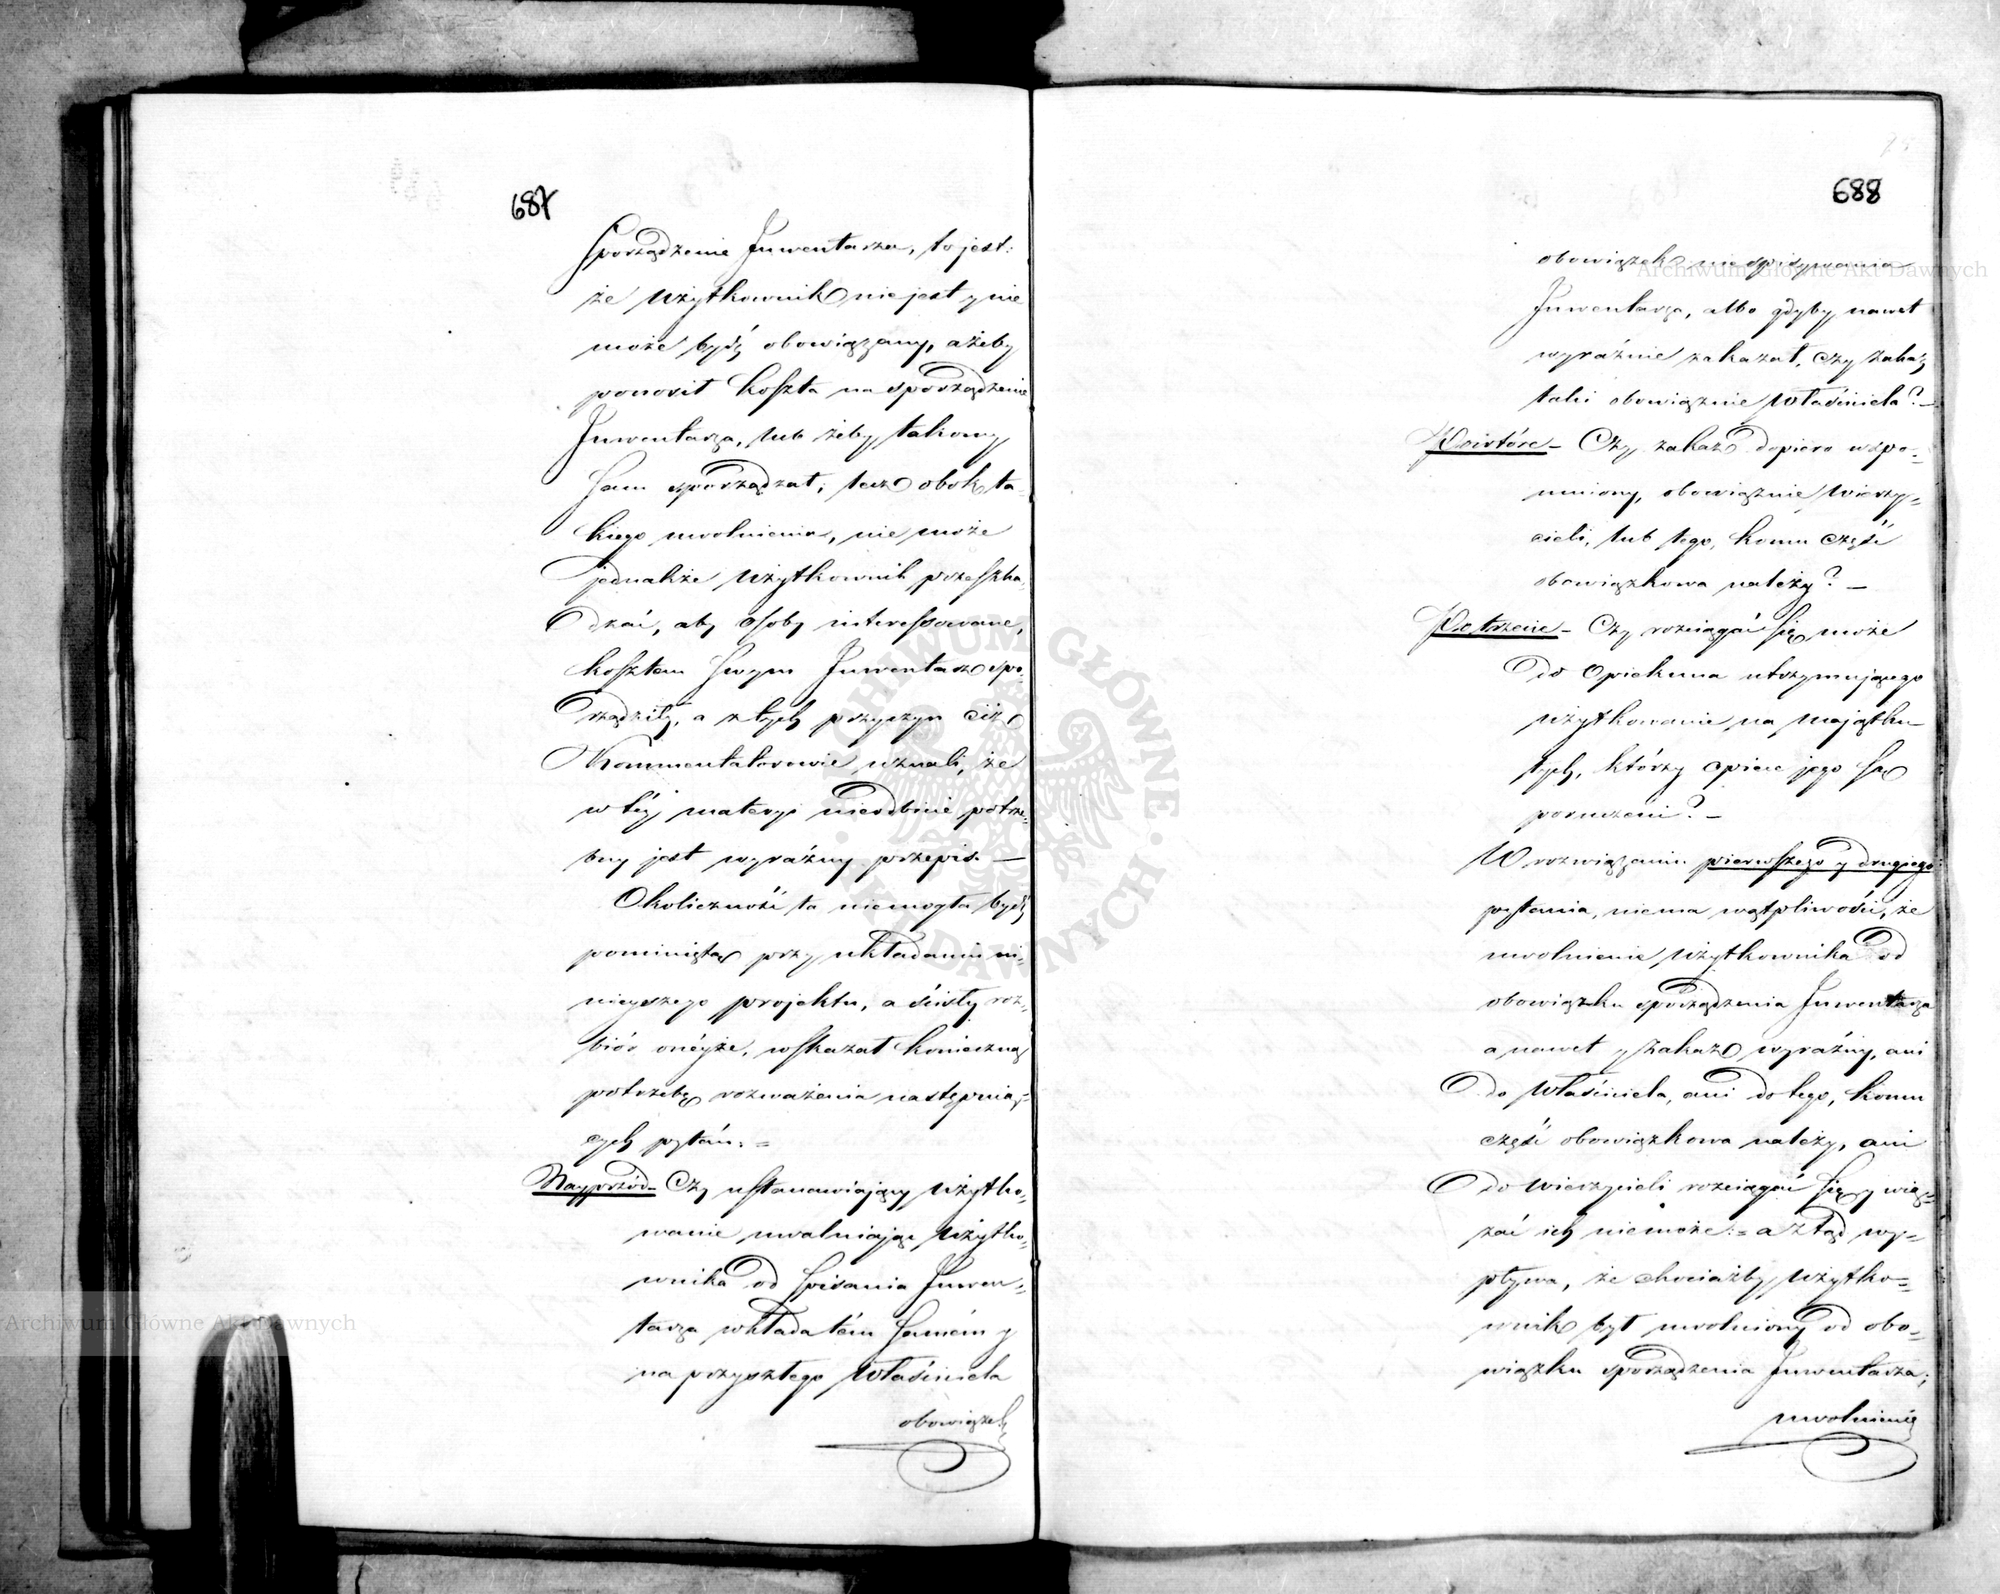 687
Sporządzenie Inwentarza, to jest:
że Użytkownik nie jest y nie
może bydź obowiązany, ażeby
ponosił koszta na sporządzenie
Inwentarza, lub żeby takowy
sam sporządzał; lecz obok ta-
kiego uwolnienia, nie może
jednakże Użytkownik przeszka-
dzać, aby osoby interessowane,
kosztem swym Inwentarz spo-
rządziły, a z tych przyczyn ciż
Kommentatorowie uznali, że
w téy materyi niezbędnie potrze-
bny jest wyraźny przepis. —
Okoliczność ta niemogła bydź
pominiętą przy układaniu ni-
nieyszego projektu, a ścisły roz-
biór onéyże, wskazał konieczną
potrzebę rozważenia następują-
cych pytań. =
Nayprzód – Czy ustanawiający Użytko-
wanie uwalniając Użytko-
wnika od spisania Inwen-
tarza wkłada tém samém y
na przyszłego Właściciela
obowiązek
688
obowiązek niespisywania
Inwentarza, albo gdyby nawet
wyraźnie zakazał, czy zakaz
taki obowiąznie Właściciela? –
Powtóre – Czy zakaz dopiero wspo-
mniony, obowiąznie Wierzy-
cieli, lub tego, komu część
obowiązkowa należy? –
Po trzecie – Czy rozciągać się może
do Opiekuna utrzymującego
użytkowanie na majątku
tych, którzy opiece jego są
poruczeni? –
W rozwiązaniu pierwszego y drugiego
pytania, niema wątpliwości, że
uwolnienie Użytkownika od
obowiązku sporządzenia Inwentarza
a nawet y zakaz wyraźny, ani
do Właściciela, ani do tego, komu
część obowiązkowa należy, ani
do Wierzycieli rozciągać się y wią-
zać ich niemoże: = a ztąd wy-
pływa, że chociażby Użytko-
wnik był uwolniony od obo-
wiązku sporządzenia Inwentarza;
uwolnienie
Archiwum Główne Akt Dawnych
Archiwum Główne Akt Dawnych
ARCHIWUM GŁÓWNE AKT DAWNYCH